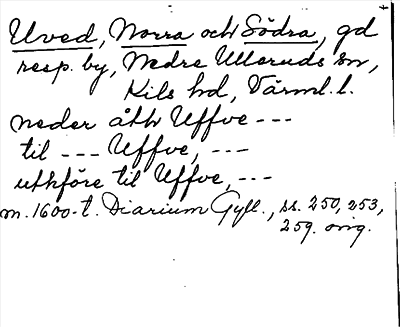 Ulved, Norra och Södra, gd
resp. by, Nedre Ulleruds sn,
Kils hd, Värml. l.
neder åth Uffve ---
til --- Uffve, ---
uthföre til Uffve, ---
m. 1600-t. Diarium Gyll., ss. 250, 253,
259. orig.